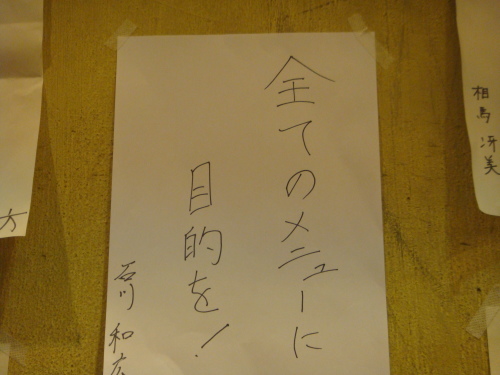 全てのメニューに
目的を!
石川 和広
相馬 冴美
方